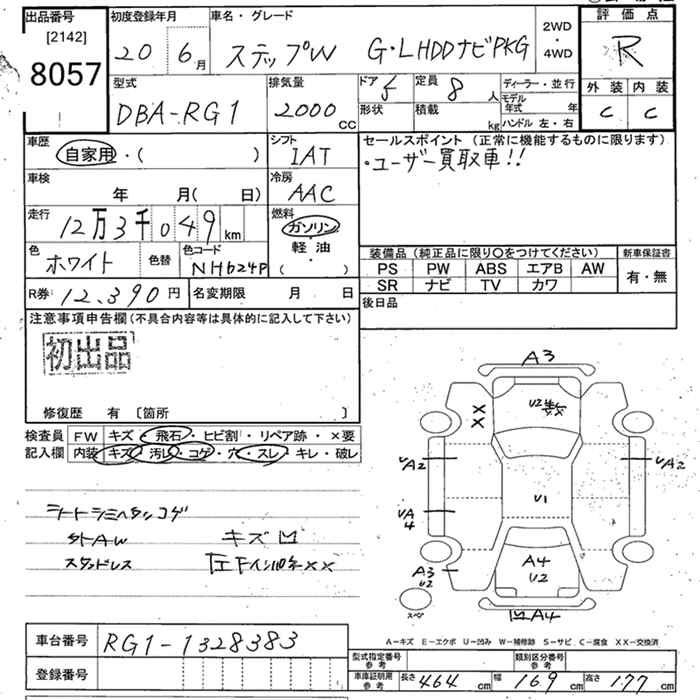 出品番号 初度登録年月 車名・グレード 2WD・4WD 評価点
[2142]
8057
20 6月 ステップW G・LHDDナビPKG R
型式 排気量 ドア 5 定員 8人 ディーラー・並行 外装 内装
DBA-RG1 2000cc 形状 積載 kg モデル年式 年 C C
ハンドル 左・右
車歴 シフト セールスポイント (正常に機能するものに限ります)
自家用・( ) IAT ・ユーザー買取車!!
車検 冷房
年 月( 日) AAC
走行 燃料
12万3千049km ガソリン・軽油
( )
色 ホワイト 色替 色コード NH624P
装備品 (純正品に限り○をつけてください) 新車保証書
PS PW ABS エアB AW 有・無
SR ナビ TV カワ
R券 12,390円 名変期限 月 日 後日品
注意事項申告欄(不具合内容等は具体的に記入して下さい)
初出品
修復歴 有 〔箇所 〕
検査員 FW キズ・飛石・ヒビ割・リペア跡・×要
記入欄 内装 キズ・汚レ・コゲ・穴・スレ・キレ・破レ
A3
XX
U2
A2
UA2
U1
UA4
A3
U2
A4
U2
A4
キズ凹
スタッドレス
A-キズ E-エクボ U-凹み W-補修跡 S-サビ C-腐食 XX-交換済
車台番号 RG1-1328383
登録番号
型式指定番号 参考 類別区分番号 参考
車庫証明用 参考 長さ 464cm 幅 169cm 高さ 177cm